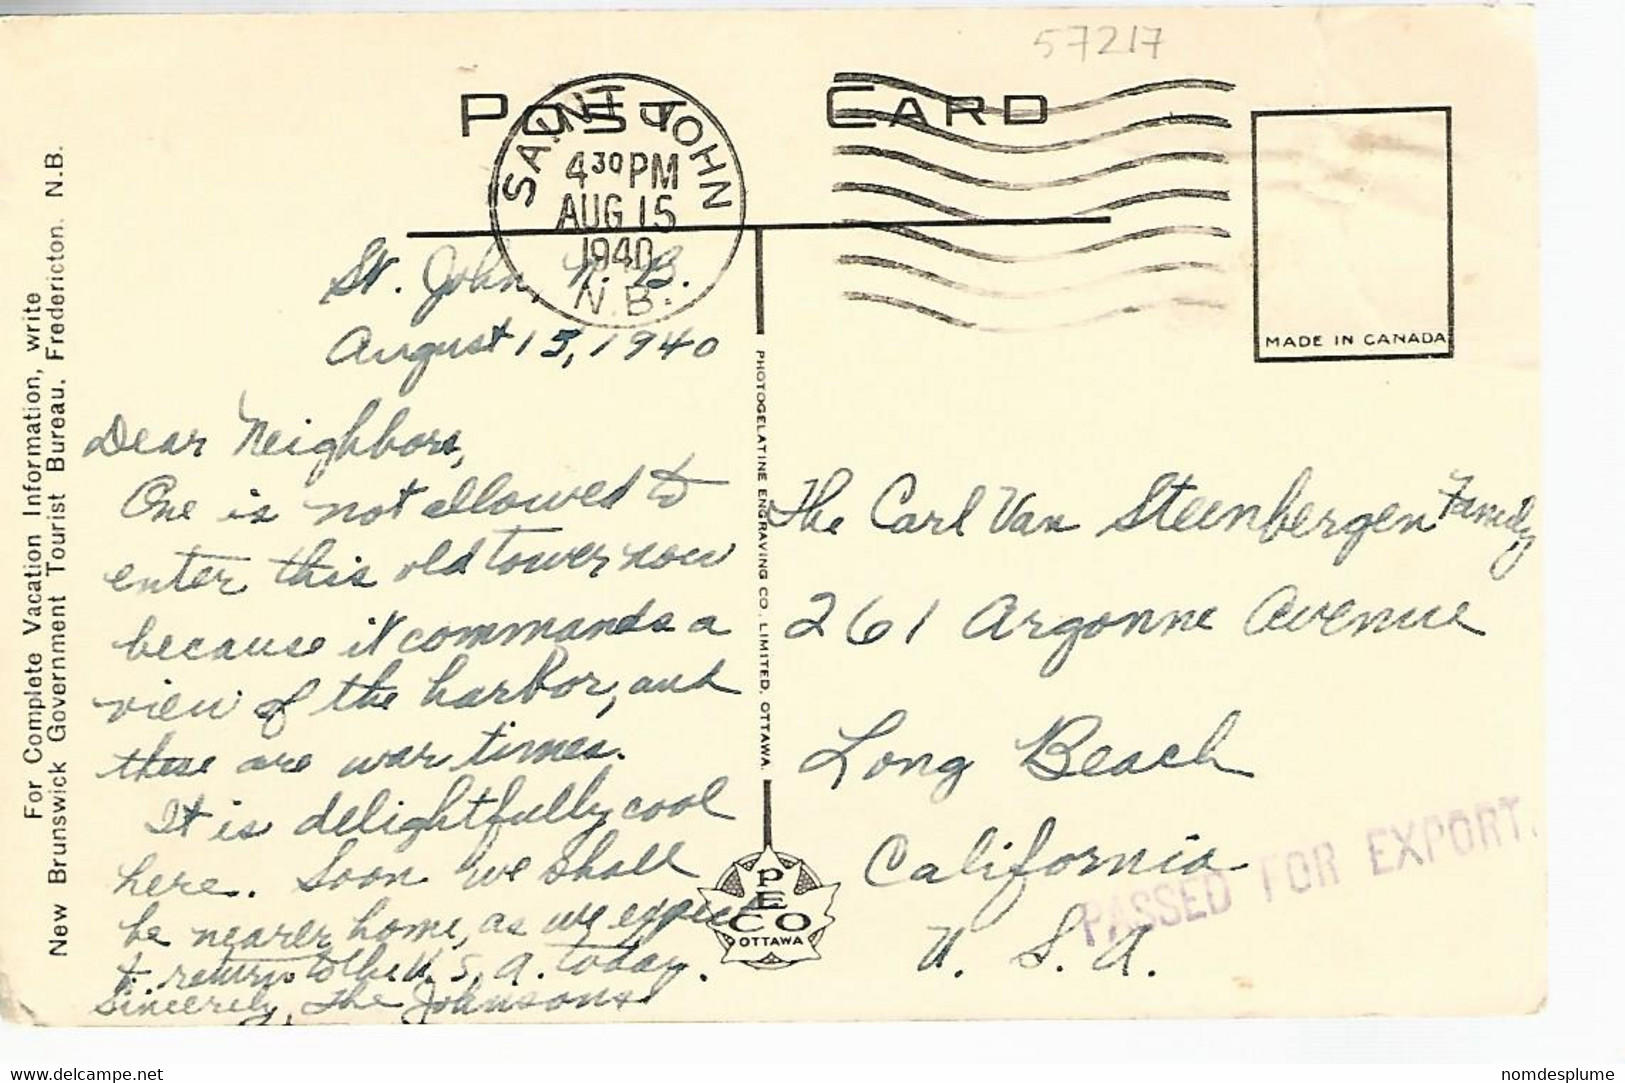 57217
POST CARD
SAINT JOHN
4 30 PM
AUG 15
1940
N.B.
MADE IN CANADA
For Complete Vacation Information, write
New Brunswick Government Tourist Bureau, Fredericton. N.B.
St. John, N. B.
August 15, 1940
Dear Neighbors,
One is not allowed to
enter this old tower now
because it commands a
view of the harbor, and
these are war times.
It is delightfully cool
here. Soon we shall
be nearer home, as we expect
to return to the U. S. A. today.
Sincerely, The Johnsons
PHOTOGELATINE ENGRAVING CO. LIMITED. OTTAWA.
PECO
OTTAWA
The Carl Van Steenbergen Family
261 Argonne Avenue
Long Beach
California
U. S. A.
PASSED FOR EXPORT.
delcampe.net
nomdesplume